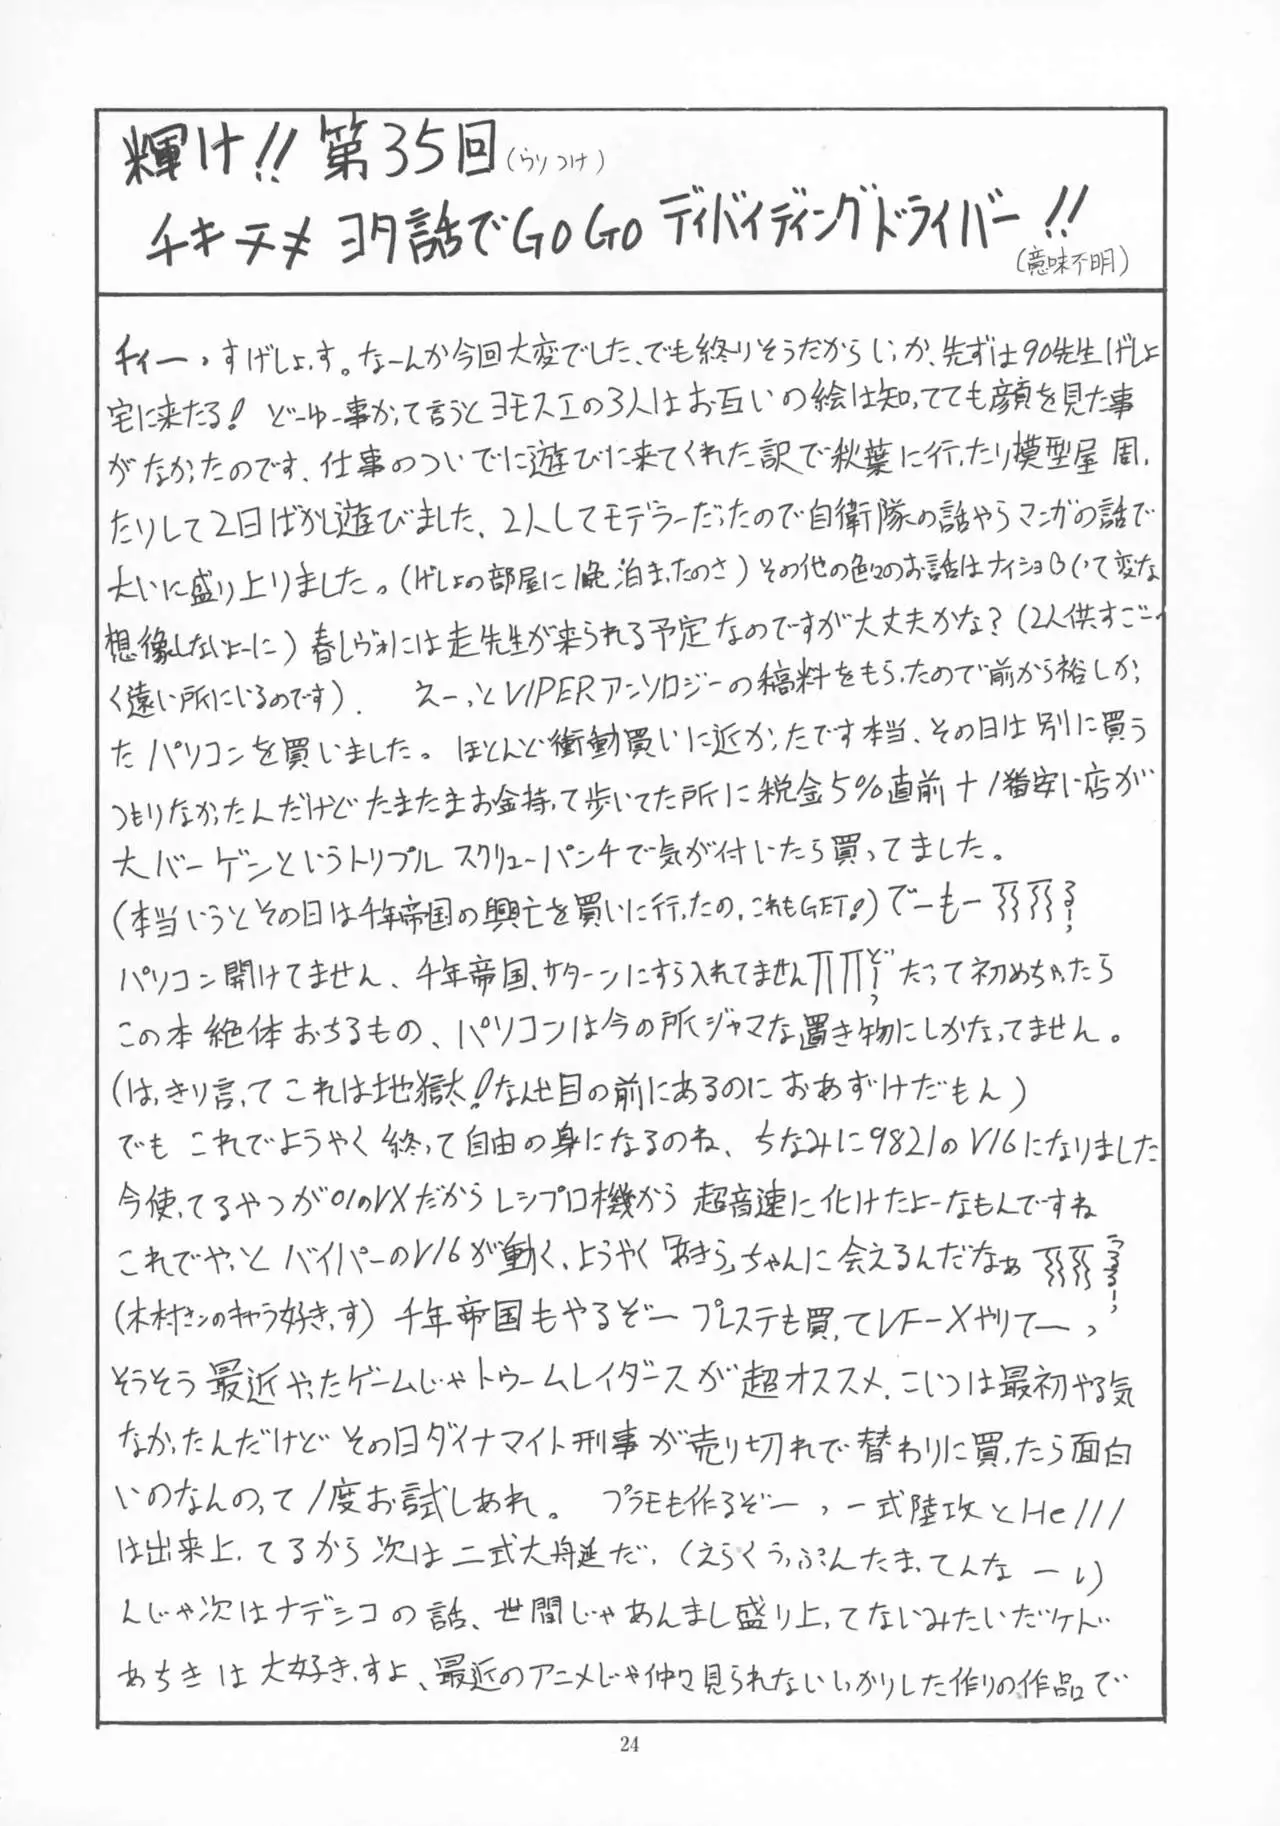 輝け!! 第35回(ウソつけ)
チキチキ ヨタ話でGoGo ディバイディングドライバー!!
(意味不明)
チィーっすげしょっす。なーんか今回大変でした、でも終りそうだからいっか、先ずは90先生げしょ
宅に来たる! どーゆー事かって言うとヨモスエの3人はお互いの絵は知ってても顔を見た事
がなかったのです、仕事のついでに遊びに来てくれた訳で秋葉に行ったり模型屋周っ
たりして2日ばかし遊びました、2人してモデラーだったので自衛隊の話やらマンガの話で
大いに盛り上りました。(げしょの部屋に1晩泊まったのさ)その他の色々のお話はナイショ(って変な
想像しないよーに)春レヴォには走先生が来られる予定なのですが大丈夫かな?(2人供すごー
く遠い所にいるのです). えーっとVIPERアンソロジーの稿料をもらったので前から欲しかっ
たパソコンを買いました。ほとんど衝動買いに近かったです本当、その日は別に買う
つもりなかったんだけどたまたまお金持って歩いてた所に税金5%直前+1番安い店が
大バーゲンというトリプルスクリューパンチで気が付いたら買ってました。
(本当いうとその日は千年帝国の興亡を買いに行ったの,これもGET!)でーもー
パソコン開けてません、千年帝国、サターンにすら入れてません だって初めちゃったら
この本絶体おちるもの、パソコンは今の所ジャマな置き物にしかなってません。
(はっきり言ってこれは地獄だ!なんせ目の前にあるのにおあずけだもん)
でもこれでようやく終って自由の身になるのね、ちなみに9821のV16になりました
今使ってるやつが01のVXだからレシプロ機から超音速に化けたよーなもんですね
これでやっとバイパーのV16が動く、ようやく「あきら」ちゃんに会えるんだなぁ
(木村サンのキャラ好きっす)千年帝国もやるぞー プレステも買ってVF-Xやりてーっ
そうそう最近やったゲームじゃトゥームレイダースが超オススメ、こいつは最初やる気
なかったんだけどその日ダイナマイト刑事が売り切れで替わりに買ったら面白
いのなんのって1度お試しあれ。 プラモも作るぞーっ一式陸攻とHe111
は出来上ってるから次は二式大舟延だ,(えらくうっぷんたまってんなーい)
んじゃ次はナデシコの話、世間じゃあんまし盛り上ってないみたいだケド
あちきは大好きっすよ、最近のアニメじゃ仲々見られないしっかりした作りの作品で
24